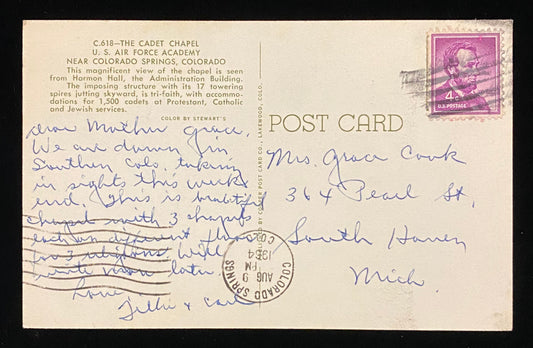 C.618—THE CADET CHAPEL
U. S. AIR FORCE ACADEMY
NEAR COLORADO SPRINGS, COLORADO
This magnificent view of the chapel is seen
from Harmon Hall, the Administration Building.
The imposing structure with its 17 towering
spires jutting skyward, is tri-faith, with accommo-
dations for 1,500 cadets at Protestant, Catholic
and Jewish services.
COLOR BY STEWART'S
Dear Mother Grace,
We are down in
Southern Colo. taking
in sights this week
end. This is beautiful
chapel with 3 chapels
each on different floors
for 3 religions. Will
write more later
Love
Tillie + Carl
POST CARD CO., LAKEWOOD, COLO.
POST CARD
4¢
U.S. POSTAGE
Mrs. Grace Cook
364 Pearl St,
South Haven
Mich.
COLORADO SPRINGS
COLO.
AUG 9
PM
1964